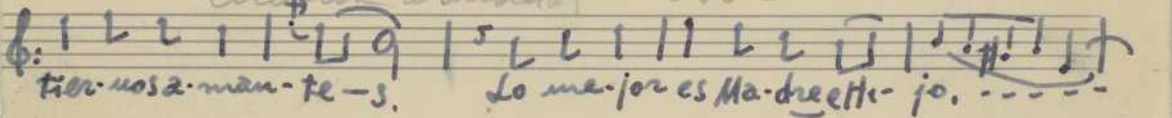 tier-nos a-man-te-s. Lo me-jor es Ma-dre e Hi-jo. - - - - -